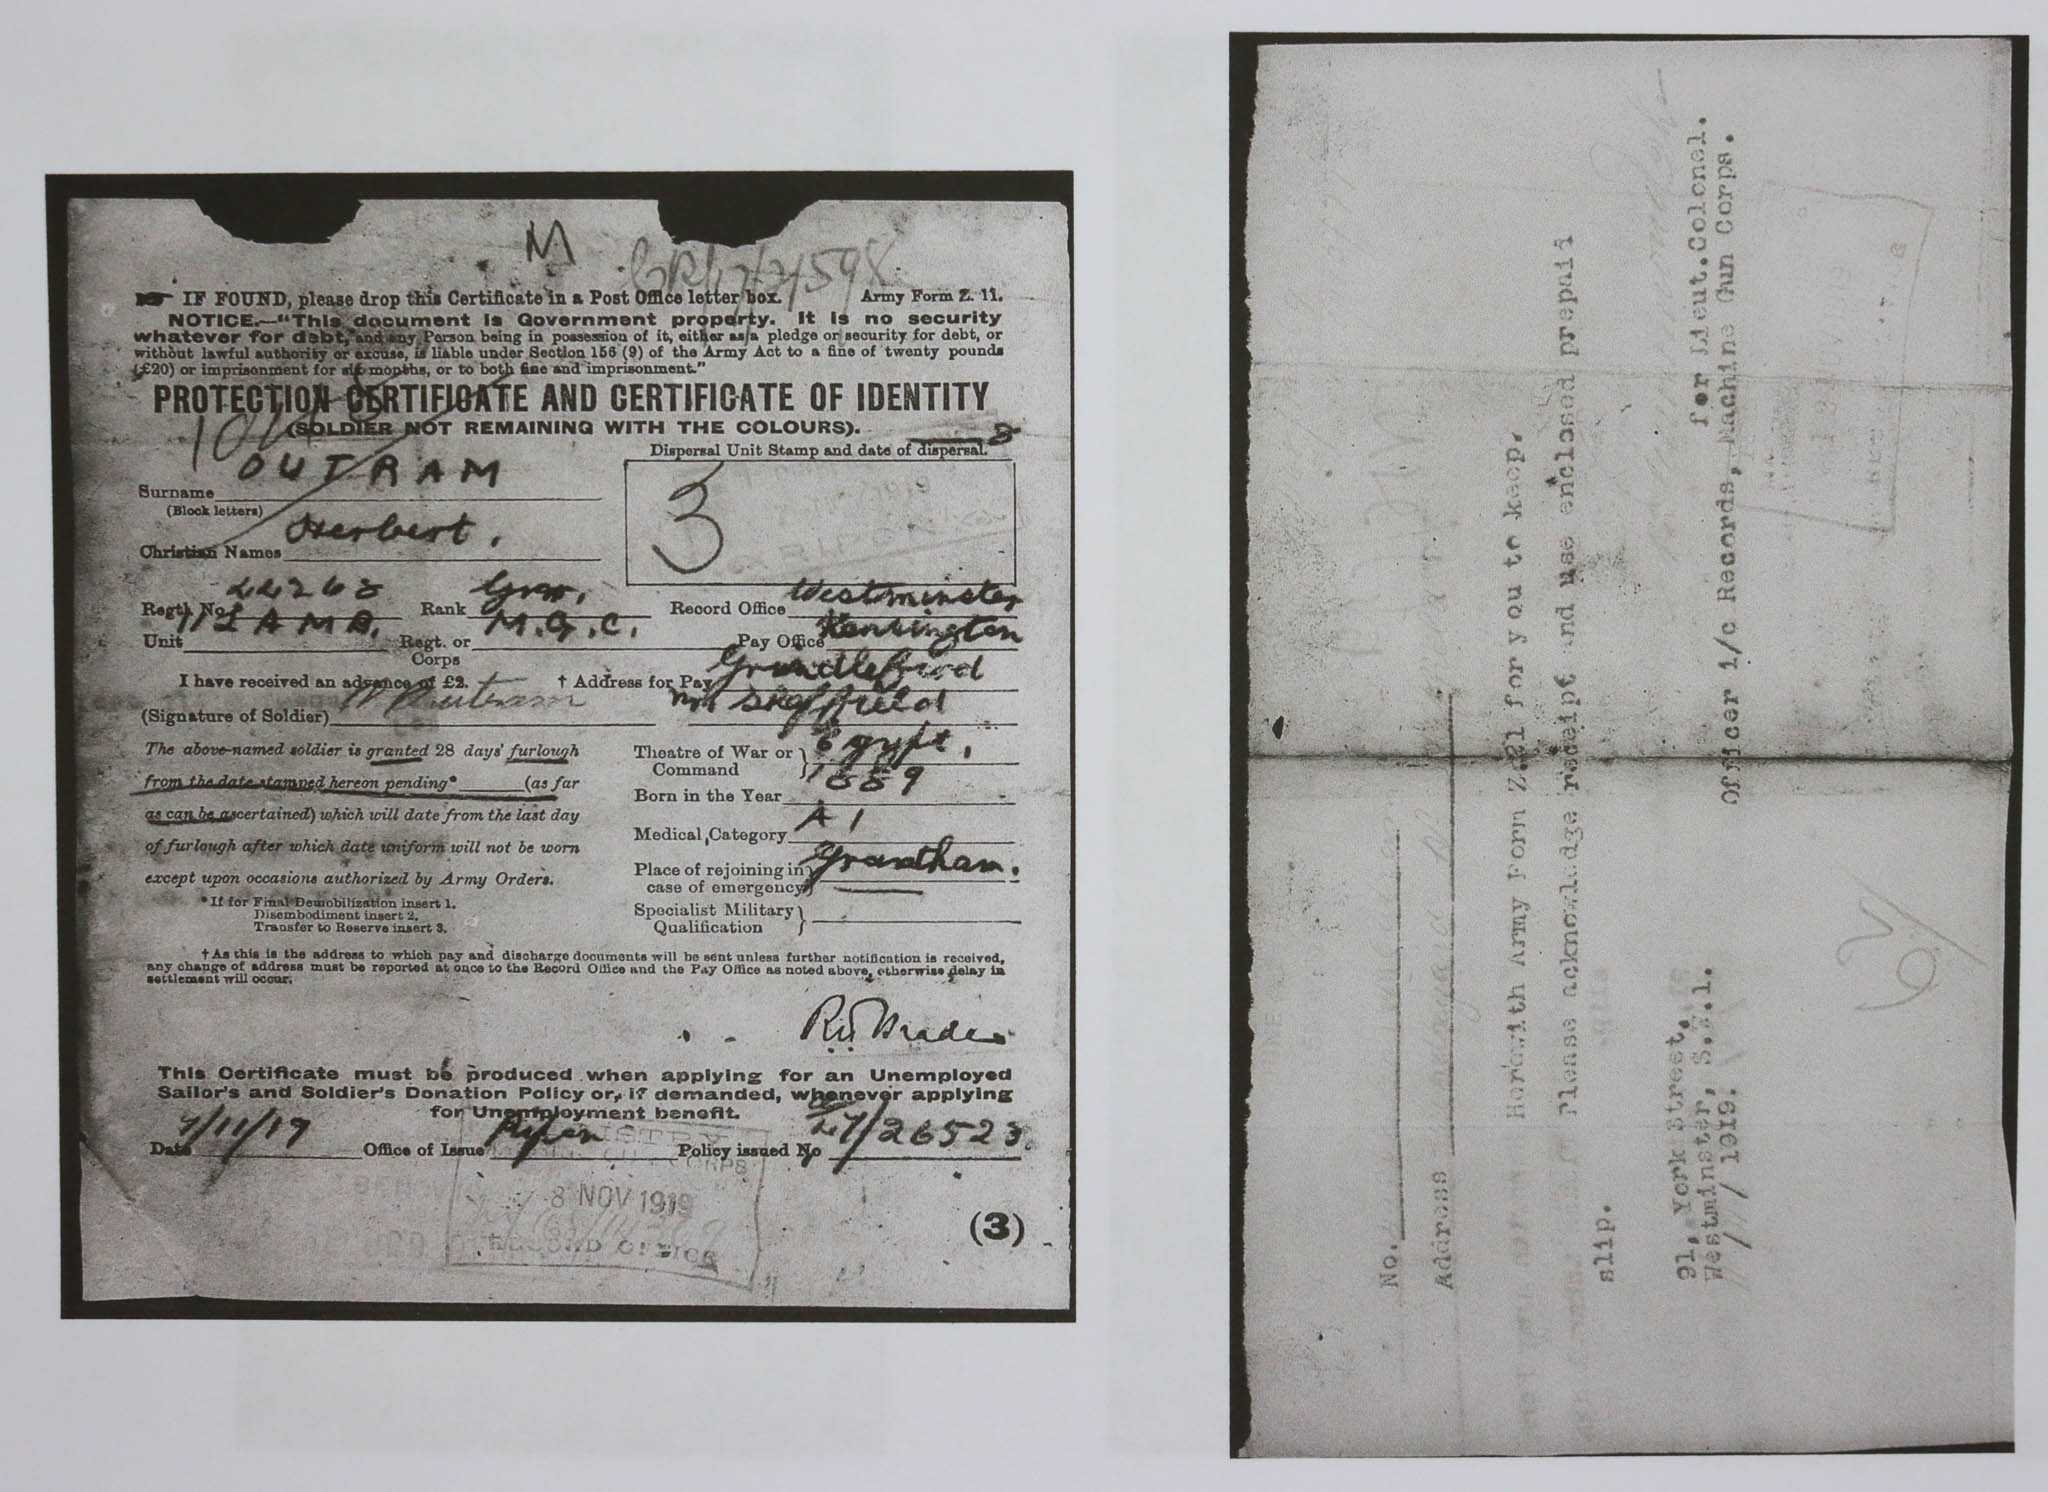 M
IF FOUND, please drop this Certificate in a Post Office letter box. Army Form Z. 11.
NOTICE.—"This document is Government property. It is no security
whatever for debt, and any Person being in possession of it, either as a pledge or security for debt, or
without lawful authority or excuse, is liable under Section 156 (9) of the Army Act to a fine of twenty pounds
(£20) or imprisonment for six months, or to both fine and imprisonment."
PROTECTION CERTIFICATE AND CERTIFICATE OF IDENTITY
(SOLDIER NOT REMAINING WITH THE COLOURS).
Dispersal Unit Stamp and date of dispersal.
3
Surname OUTRAM
(Block letters)
Christian Names Herbert.
Regtl. No. Rank Gnr. Record Office Westminster
Unit AMB. Regt. or Corps M.G.C. Pay Office Kensington
I have received an advance of £2. † Address for Pay Grindleford
(Signature of Soldier) H Outram Nr Sheffield
The above-named soldier is granted 28 days' furlough
from the date stamped hereon pending* (as far
as can be ascertained) which will date from the last day
of furlough after which date uniform will not be worn
except upon occasions authorized by Army Orders.
*If for Final Demobilization insert 1.
Disembodiment insert 2.
Transfer to Reserve insert 3.
Theatre of War or Command Egypt.
Born in the Year 1889
Medical Category A 1
Place of rejoining in case of emergency Grantham.
Specialist Military Qualification
†As this is the address to which pay and discharge documents will be sent unless further notification is received,
any change of address must be reported at once to the Record Office and the Pay Office as noted above, otherwise delay in
settlement will occur.
This Certificate must be produced when applying for an Unemployed
Sailor's and Soldier's Donation Policy or, if demanded, whenever applying
for Unemployment benefit.
Date 7/11/19 Office of Issue Ripon Policy issued No
8 NOV 1919
RECORD OFFICE
(3)
No.
Address
Herewith Army Form Z.21 for you to keep.
Please acknowledge receipt and use enclosed prepaid
slip.
91, York Street,
Westminster, S.W.1.
1919.
for Lieut.Colonel.
Officer i/c Records, Machine Gun Corps.